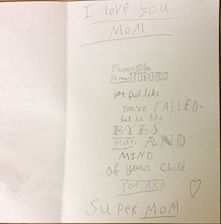 I love you
MOM
There will be
so many TIMES
you feel like
You've FAILED.
but in the
EYES
Heart, AND
MIND
Of your child
YOU ARE
SUPER MOM